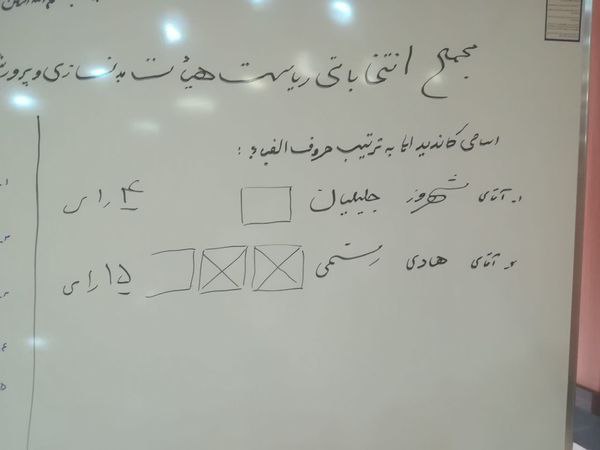 مجمع انتخاباتی ریاست هیأت بدنسازی و پرورش
اسامی کاندیداها به ترتیب حروف الفباء :
۱- آقای شهروز جلیلیان ۴ رای
۲- آقای هادی رستمی ۱۵ رای